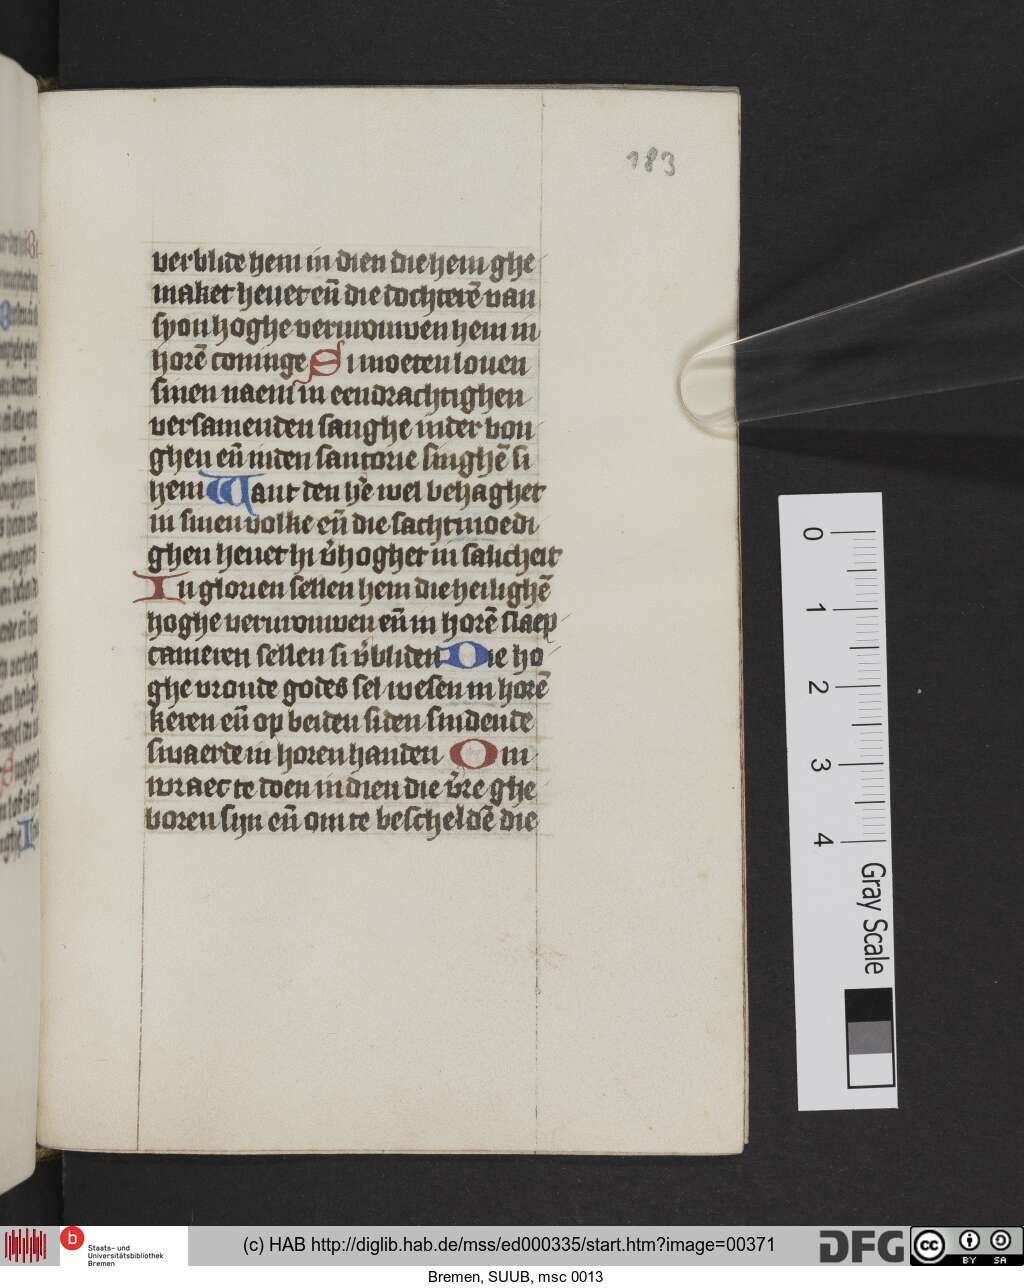 183
verblide hem in dien die hem ghe
maket hevet en̄ die dochterē van
syon hoghe verwouwen hem in
horē coninge Si moeten loven
sinen naem in eendrachtighen
versamenden sanghe inder bon
ghen en̄ inden santorie singhē si
hem Want den hē wel behaghet
in sinen volke en̄ die sachtmoedi
ghen hevet hi v̄hoghet in salicheit
In glorien sellen hem die heilighē
hoghe verwouwen en̄ in horē slaep
cameren sellen si v̄bliden Die ho
ghe vronde godes sel wesen in horē
keren en̄ op beiden siden snidende
swaerde in horen handen Om
wraec te doen in dien die v̄re ghe
boren sijn en̄ om te bescheldē die
0
1
2
3
4
Gray Scale
b
Staats- und
Universitätsbibliothek
Bremen
(c) HAB http://diglib.hab.de/mss/ed000335/start.htm?image=00371
DFG
cc
BY SA
Bremen, SUUB, msc 0013